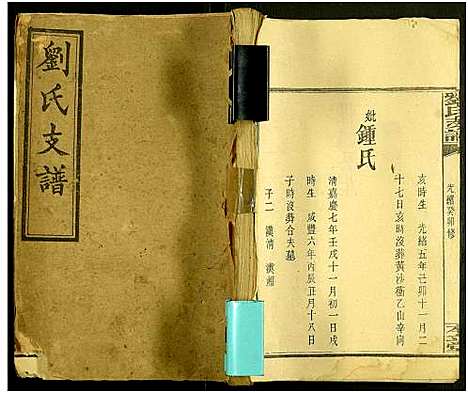 劉氏支譜
亥時生 光緒五年己卯十一月二
十七日亥時沒葬黃沙衝乙山辛向
妣鍾氏
清嘉慶七年壬戌十一月初一日戌
時生 咸豐六年丙辰正月十八日
子時沒葬合夫墓
子二 漢清 漢湘
劉氏支譜
光緒癸卯修